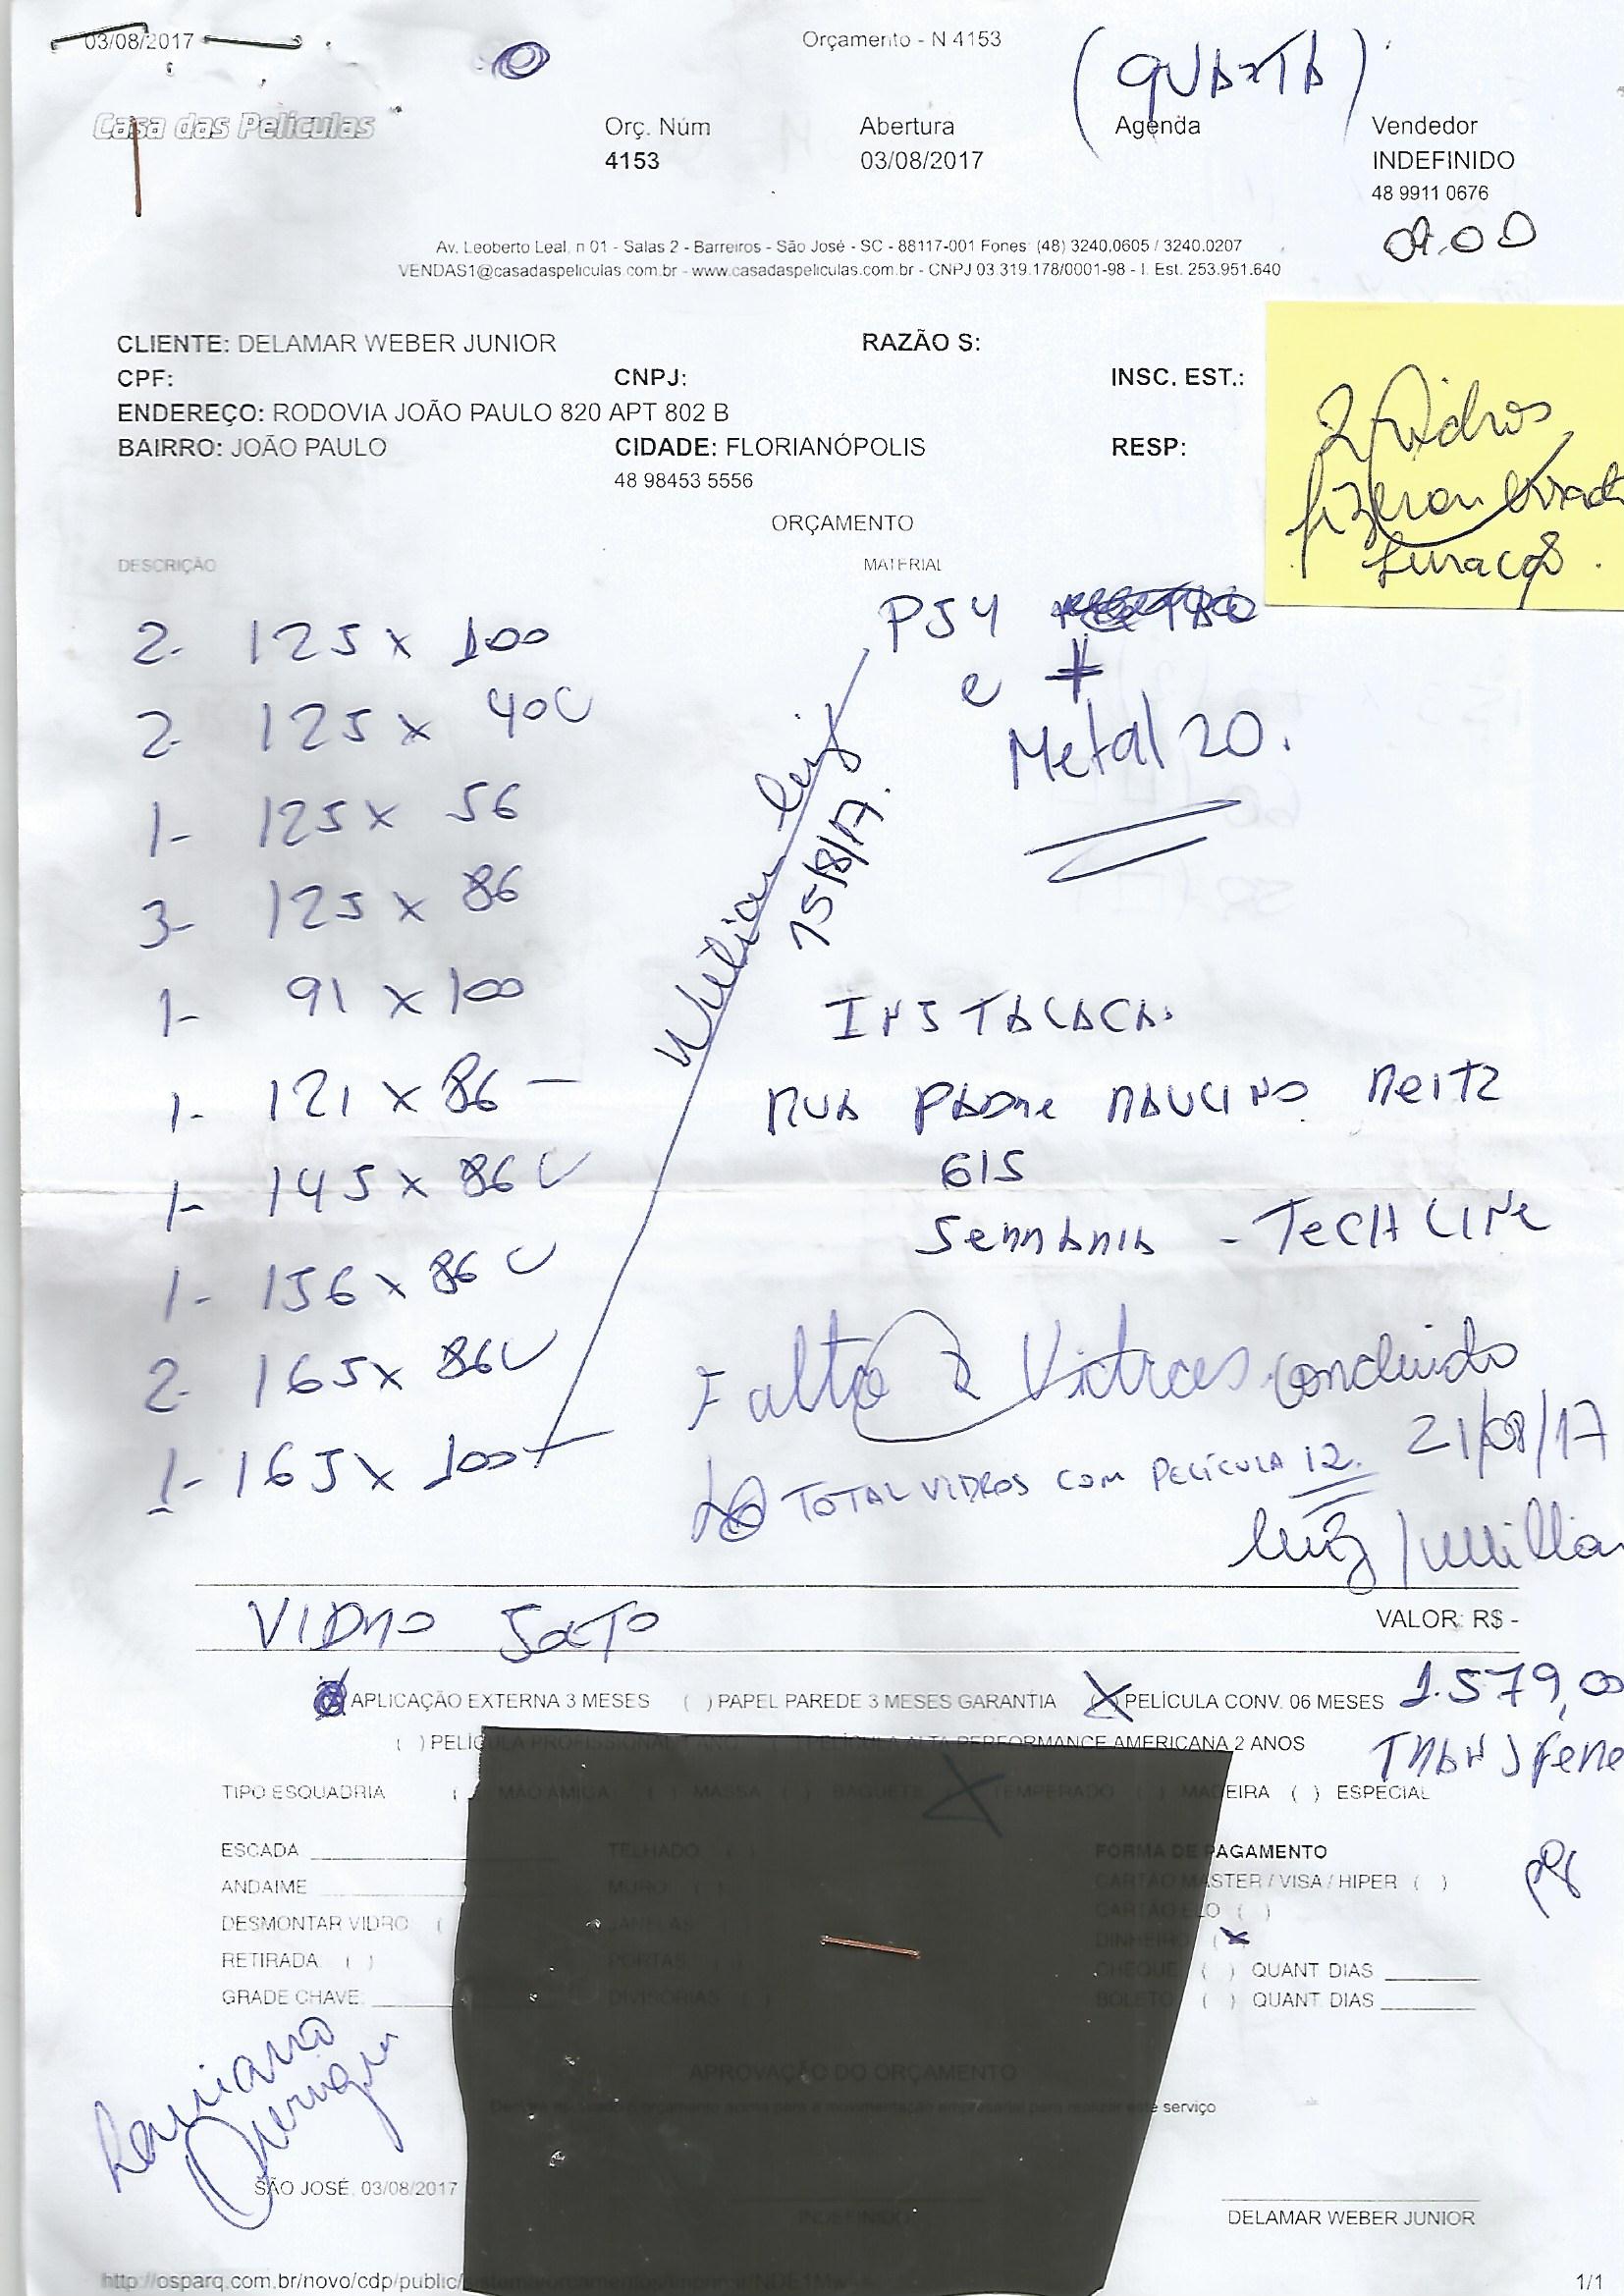 03/08/2017
Orçamento - N 4153
(QUARTA)
Casa das Películas
Orç. Núm
Abertura
Agenda
Vendedor
4153
03/08/2017
INDEFINIDO
48 9911 0676
Av. Leoberto Leal, n 01 - Salas 2 - Barreiros - São José - SC - 88117-001 Fones: (48) 3240.0605 / 3240.0207
VENDAS1@casadaspeliculas.com.br - www.casadaspeliculas.com.br - CNPJ 03.319.178/0001-98 - I. Est. 253.951.640
CLIENTE: DELAMAR WEBER JUNIOR
RAZÃO S:
CPF:
CNPJ:
INSC. EST.:
ENDEREÇO: RODOVIA JOÃO PAULO 820 APT 802 B
BAIRRO: JOÃO PAULO
CIDADE: FLORIANÓPOLIS
RESP:
48 98453 5556
2 Vidros
fizeram
furação.
ORÇAMENTO
DESCRIÇÃO
MATERIAL
2- 125 x 100
2- 125 x 40
1- 125 x 56
3- 125 x 86
1- 91 x 100
1- 121 x 86
1- 145 x 86
1- 156 x 86
2- 165 x 86
1- 165 x 100
PS4
e
Metal 20.
Willian Luiz
15/8/17.
INSTALACA.
RUA PADRE RAULINO REITZ
615
SERRARIA - TECH LINE
Falta 2 Vidros concluido
21/08/17
TOTAL VIDROS COM PELÍCULA 12.
Luiz / Willian
VIDRO
VALOR: R$ -
1.579,00
APLICAÇÃO EXTERNA 3 MESES ( ) PAPEL PAREDE 3 MESES GARANTIA (X) PELÍCULA CONV. 06 MESES
( ) PELÍCULA PROFISSIONAL 1 ANO ( ) PELÍCULA ALTA PERFORMANCE AMERICANA 2 ANOS
TRANSFERE
TIPO ESQUADRIA ( ) MÃO AMIGA ( ) MASSA ( ) BAGUETE (X) TEMPERADO ( ) MADEIRA ( ) ESPECIAL
ESCADA
TELHADO ( )
FORMA DE PAGAMENTO
ANDAIME
MURO ( )
CARTÃO MASTER / VISA / HIPER ( )
DESMONTAR VIDRO (
JANELAS
CARTÃO ELO ( )
RETIRADA ( )
PORTAS
DINHEIRO (X)
GRADE CHAVE
DIVISÓRIAS
CHEQUE ( ) QUANT DIAS
BOLETO ( ) QUANT DIAS
APROVAÇÃO DO ORÇAMENTO
este serviço
SÃO JOSÉ, 03/08/2017
INDEFINIDO
DELAMAR WEBER JUNIOR
http://osparq.com.br/novo/cdp/public/
1/1